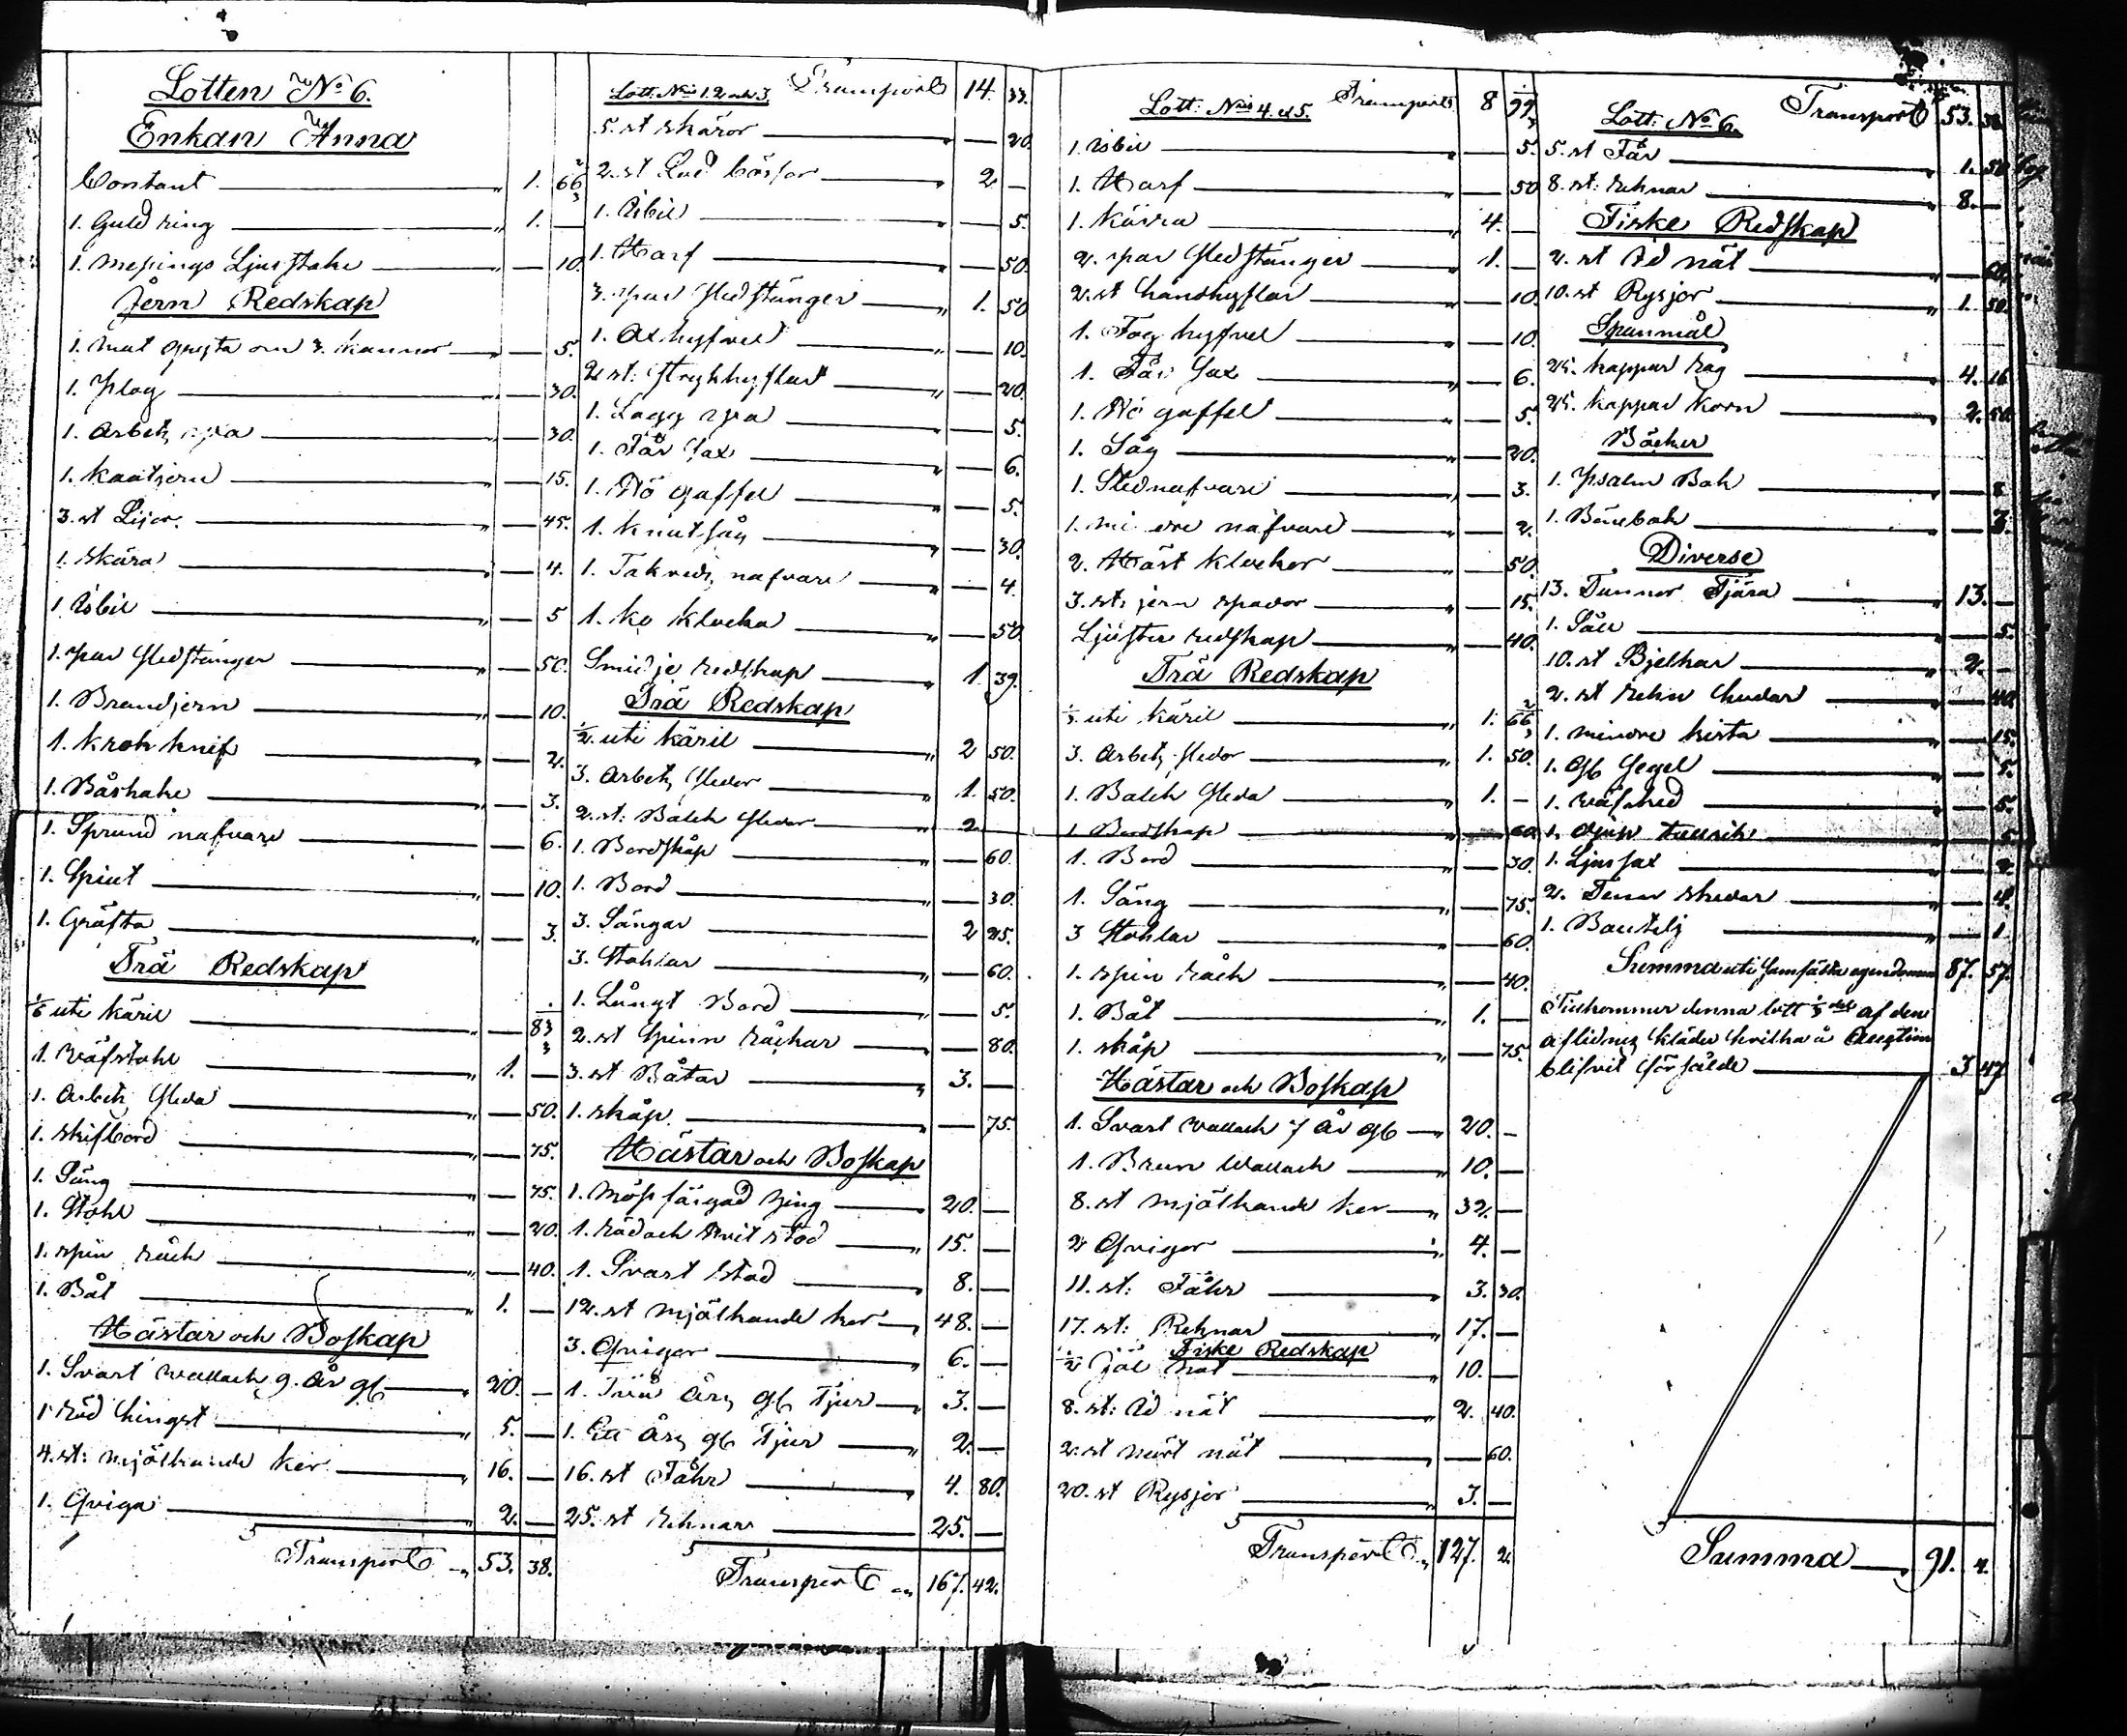 Lotten No 6.
Enkan Anna
Contant 1. 66 2/3
1. Guld ring 1. —
1. Messings Ljusstake — 10.
Jern Redskap
1. mat gryta om 3. kannor — 5.
1. Plog — 30.
1. Arbets yxa — 30.
1. — 15.
3. st Lijor. — 45.
1. skära — 4.
1. Isbil — 5
1. par Sledstänger — 50.
1. Brendjern — 10.
1. Krok knif — 2.
1. Båshake — 3.
1. Sprund nafvare — 6.
1. Spint — 10.
1. Gräfta — 3.
Trä Redskap
1/6 uti käril — 83 1/3
1. Wäfstohl 1. —
1. Arbets Sleda — 50.
1. skifbord — 75.
1. Säng — 75.
1. Stohl — 20.
1. spin råck — 40.
1. Båt 1. —
Hästar och Boskap
1. Svart Wallack 9. År gl 20. —
1. Röd hingst 5. —
4. st: mjölkande kor 16. —
1. Qviga 2. —
Transport 53. 38.
Lott. Nris 1. 2 och 3. Transport 14. 33.
5. st skäror — 20
2. st Lod bössor 2 —
1. Isbil — 5.
1. Harf — 50.
3. par Sledstänger 1. 50
1. Ax hyfvel — 10.
2 st: Strykhyflar — 20.
1. Lagg yxa — 5.
1. Får Sax — 6.
1. Hö gaffel — 5.
1. Knutsåg — 30.
1. Takveds nafvare — 4.
1. Ko klocka — 50
Smidje redskap 1. 39.
Trä Redskap
1/2 uti käril 2 50.
3. Arbets Sledor 1. 50.
2. st: Balck Sledor 2
1. Bordskåp — 60.
1. Bord — 30.
3. Sängar 2 25.
3. Stohlar — 60.
1. Långt Bord — 5.
2. st Spinn råckar — 80.
3. st Båtar 3. —
1. skåp. — 75.
Hästar och Boskap
1. 20. —
1. Röd och hvit stod 15. —
1. Svart stod 8. —
12. st mjölkande kor 48. —
3. Qvigor 6. —
1. Två Års gl Tjur 3. —
1. Ett Års gl Tjur 2. —
16. st Fåhr 4. 80.
25. st rehnar 25. —
Transport 167. 42.
Lott: Nris 4. & 5. Transport 8 99 1/3
1. Isbil — 5.
1. Harf — 50
1. Kärra 4. —
2. par Sledstänger 1. —
2. st handhyflar — 10
1. Fog hyfvel — 10.
1. Får Sax — 6.
1. Hö gaffel — 5.
1. Såg — 20.
1. Slednafvare — 3.
1. nafvare — 2.
2. Häst Klockor — 50.
3. st: jern spador — 15.
Ljuster redskap — 40.
Trä Redskap
1/3 uti käril 1. 66 2/3
3. Arbets Sledor 1. 50.
1. Balck Sleda 1. —
1 Bordskap — 60
1. Bord — 30.
1. Säng — 75.
3 Stohlar — 60.
1. spin råck — 40.
1. Båt 1. —
1. skåp — 75.
Hästar och Boskap
1. Svart Wallack 7 År gl 20. —
1. Brun Wallack 10. —
8. st mjölkande kor 32. —
2 Qvigor 4. —
11. st: Fåhr 3. 30.
17. st: Rehnar 17. —
Fiske Redskap
1/2 not 10. —
8. st: Id nät 2. 40.
2. st mört nät — 60.
20. st Rysjor 3. —
Transport 127. 2
Lott: No 6. Transport 53. 38
5. st Får 1. 50
8. st: rehnar 8. —
Fiske Redskap
2. st Id nät — 60.
10. st Rysjor 1. 50.
Spanmål
25. kappar Råg 4. 16
25. kappar Korn 2. 50.
Böcker
1. Psalm Bok — 8
1. Bönebok — 3.
Diverse
13. Tunnor Tjära 13. —
1. Såll — 5.
10. st Bjelkar 2. —
2. st rehn hudar — 40
1. mindre kista — 15.
1. Gl Segel — 5.
1. Wäfsked — 5.
1. djup — 5
1. Ljussax — 2
2. Tenn skedar — 4.
1. Boutelj — 1
Summa uti samfälda egendomen 87. 57.
Tillkommer denna lott del af den
aflidnes kläder hvilka å Auction
blifvit försålde 3 47
Summa 91. 4.